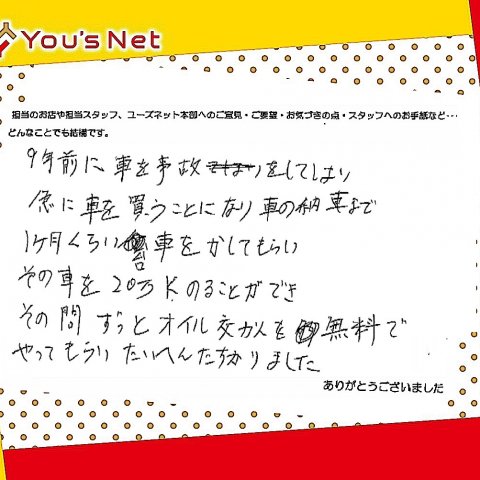 You's Net
担当のお店や担当スタッフ、ユーズネット本部へのご意見・ご要望・お気づきの点・スタッフへのお手紙など…
どんなことでも結構です。
9年前に車を事故をしてしまい
急に車を買うことになり車の納車まで
1ヶ月くらい台車をかしてもらい
その車を20万Kのることができ
その間ずっとオイル交かんを無料で
やってもらいたいへんたすかりました
ありがとうございました